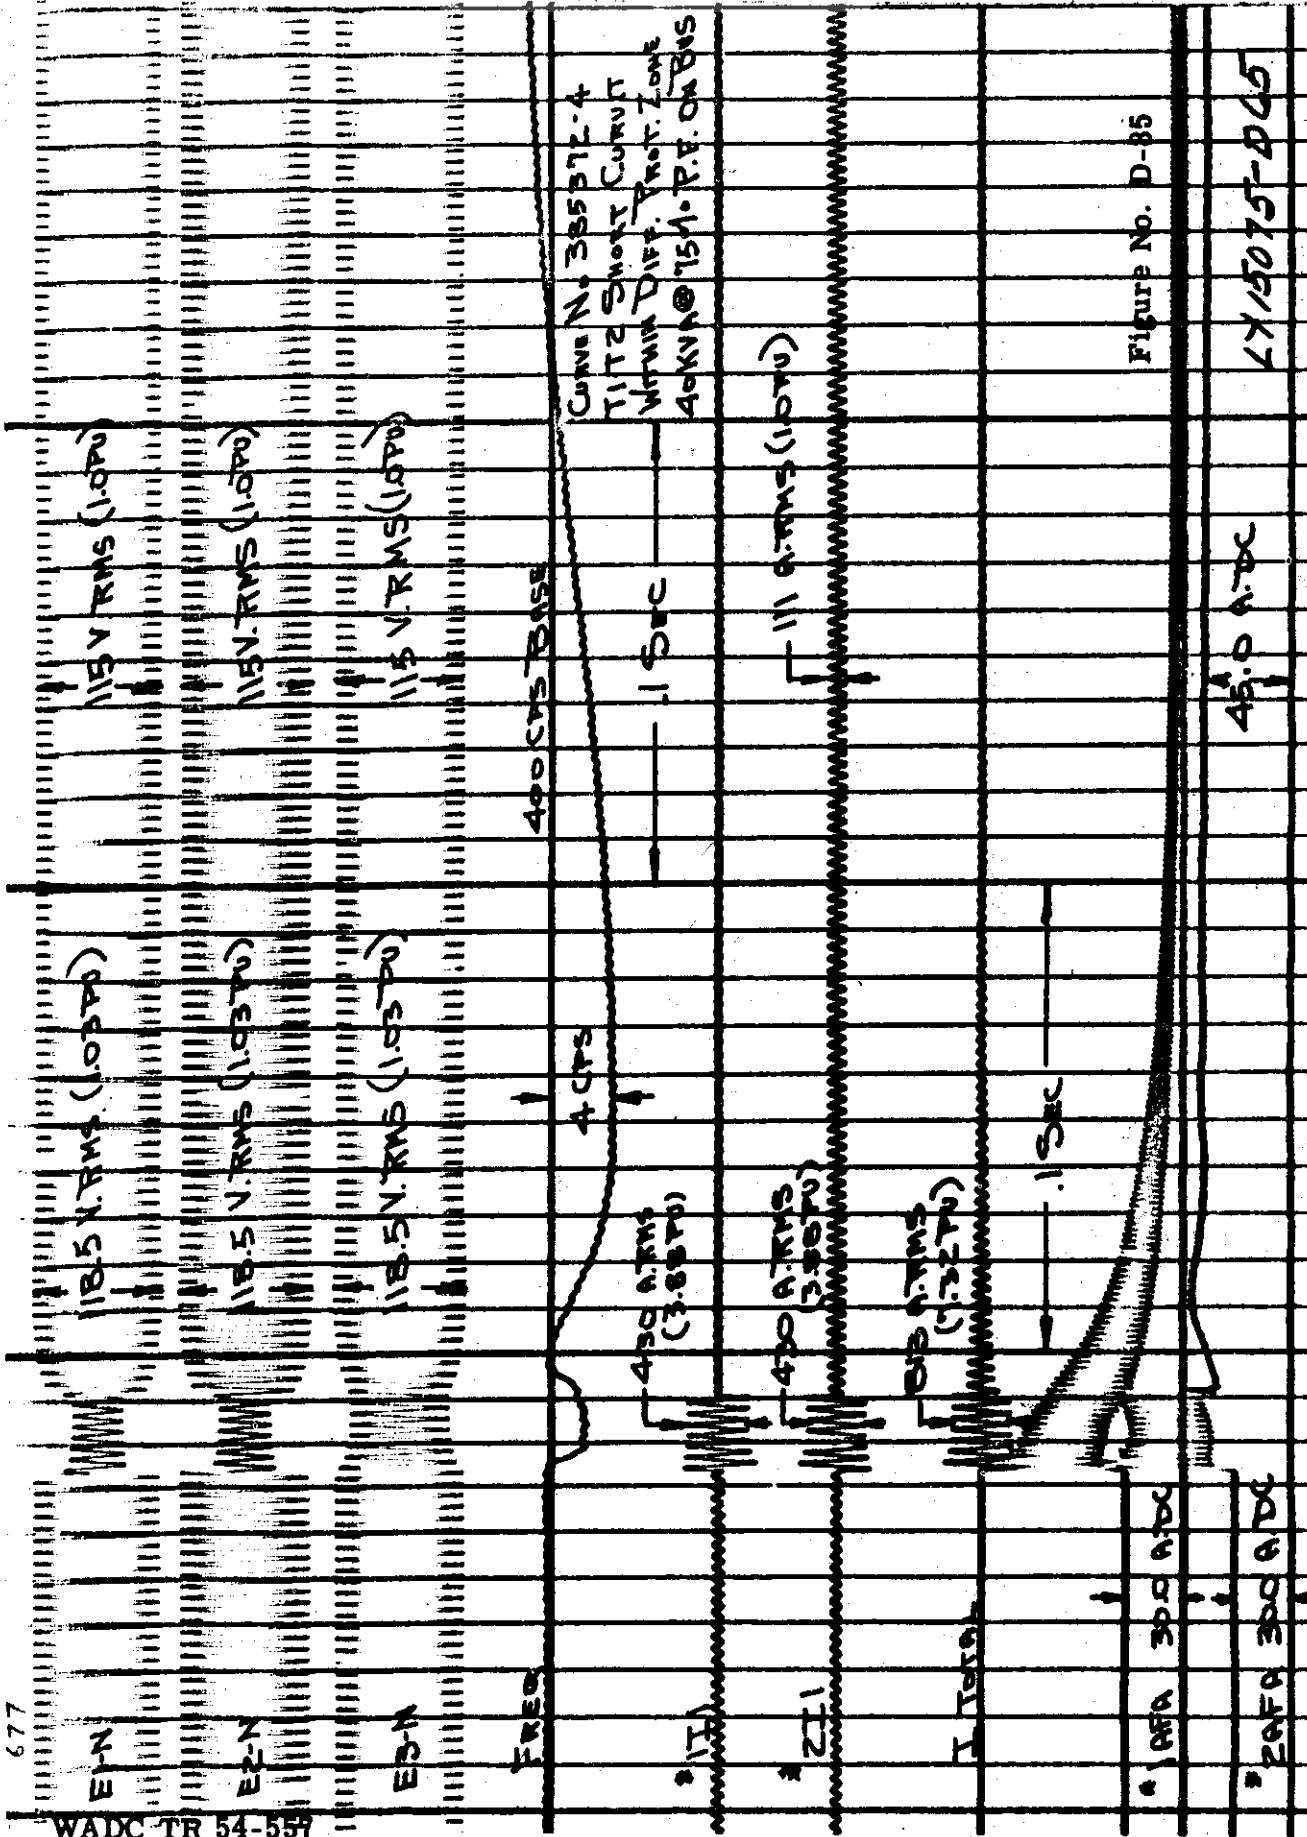 677
WADC TR 54-557
E1-N
118.5 V. RMS. (1.03 PU)
115 V RMS (1.0 PU)
E2-N
118.5 V. RMS (1.03 PU)
115 V. RMS (1.0 PU)
E3-N
118.5 V. RMS (1.03 PU)
115 V. RMS (1.0 PU)
FREQ
4 CPS
400 CPS BASE
CURVE No 385372-4
T1T2 SHORT CURVIT
WITHIN DIFF. PROT. ZONE
40KVA @ 75% P.F. ON BUS
.1 SEC
* 1T1
430 A. RMS
(3.88 PU)
* 2T1
430 A. RMS
(3.88 PU)
111 A. RMS (1.0 PU)
I TOTAL
813 A. RMS
(7.32 PU)
.1 SEC
* 1AFA 30.0 A. DC
* 2AFA 30.0 A. DC
45.0 A. DC
Figure No. D-85
LY15075-DC5